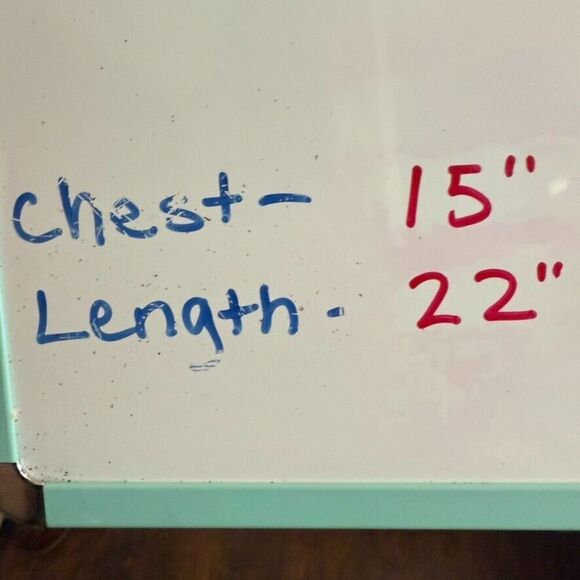 Chest- 15"
Length- 22"